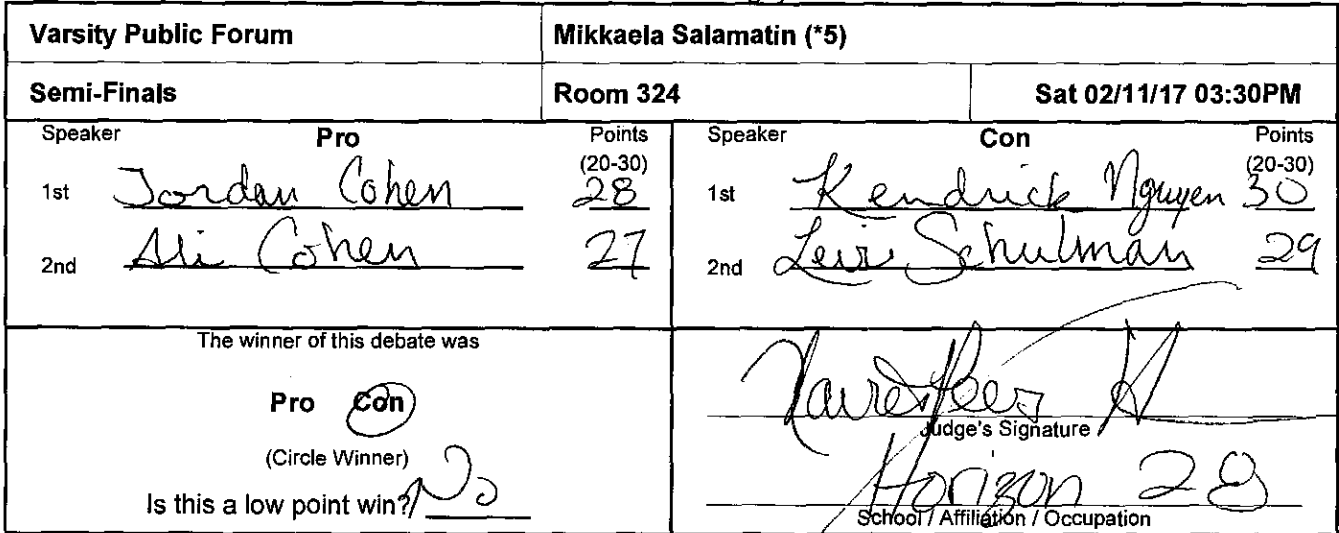 Varsity Public Forum Mikkaela Salamatin (*5)
Semi-Finals Room 324 Sat 02/11/17 03:30PM
Speaker Pro Points (20-30)
1st Jordan Cohen 28
2nd Ali Cohen 27
Speaker Con Points (20-30)
1st Kendrick Nguyen 30
2nd Levi Schulman 29
The winner of this debate was
Pro Con
(Circle Winner)
Is this a low point win? No
Judge's Signature
Horizon 28
School / Affiliation / Occupation